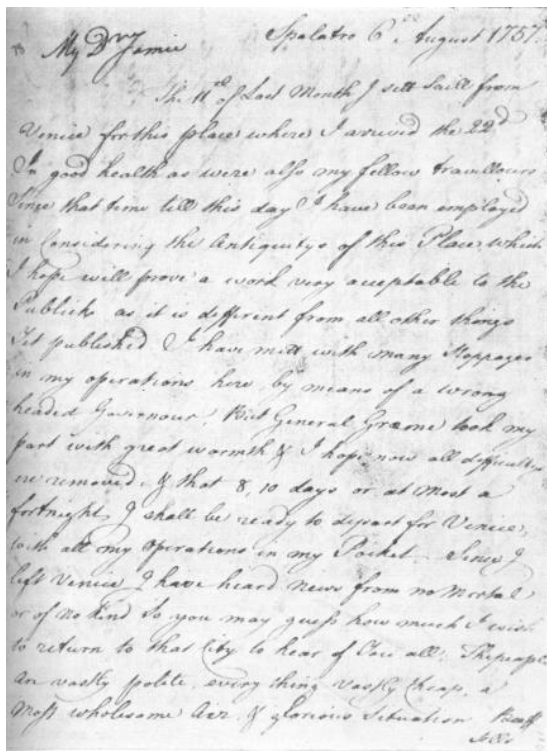 Spalatro 6th August 1757
My Dr Jamie
The 11th of Last Month I sett Saill from
Venice for this place where I arrived the 22d
In good health as were also my fellow travellours
Since that time till this day I have been employed
in Considering the Antiquitys of this Place, which
I hope will prove a work very acceptable to the
Publick as it is different from all other things
Yet published. I have mett with many Stoppages
in my operations here, by means of a wrong
headed Governour, But General Græme took my
part with great warmth & I hope now all difficultys
are removed, & that 8, 10 days or at most a
fortnight, I shall be ready to depart for Venice,
with all my Operations in my Pocket. Since I
left Venice I have heard news from no Mortal
or of no kind So you may guess how much I wish
to return to that City to hear of You all. The people
are vastly polite, every thing vastly Cheap, a
Most wholesome Air, & glorious Situation